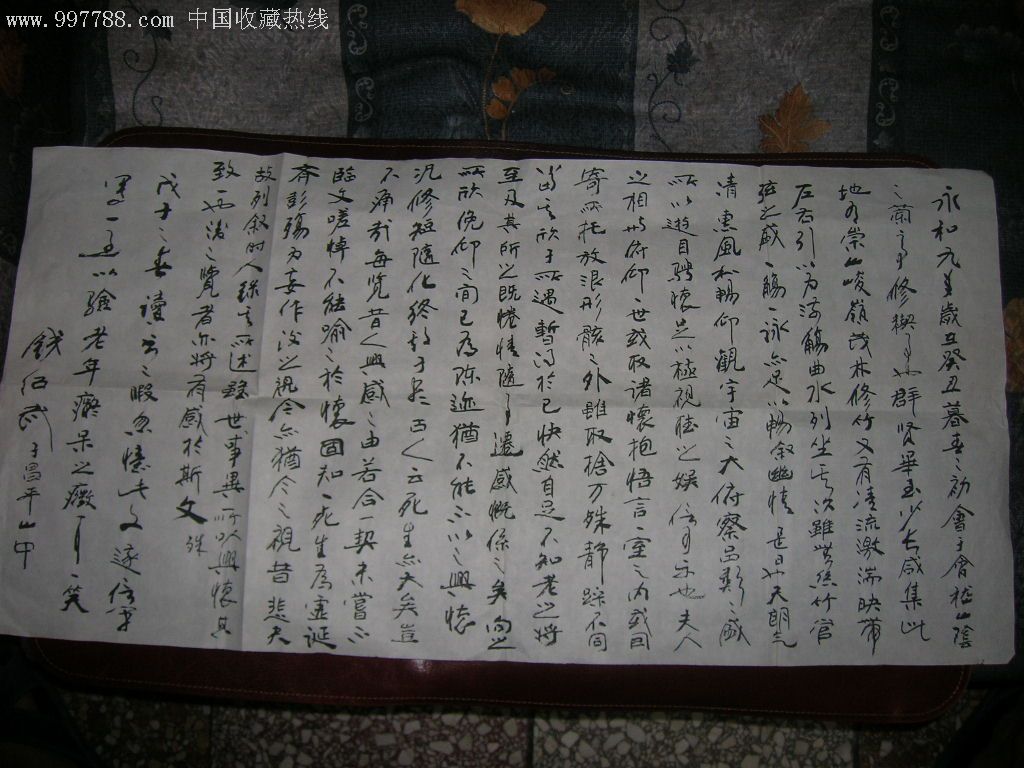 www.997788.com 中国收藏热线
永和九年歲丑癸丑暮春之初會于會稽山陰
之蘭亭修禊事也群賢畢至少長咸集此
地有崇山峻嶺茂林修竹又有清流激湍映帶
左右引以为流觴曲水列坐其次雖無丝竹管
弦之盛一觴一詠亦足以暢叙幽情是日也天朗氣
清惠風和暢仰觀宇宙之大俯察品類之盛
所以遊目騁懷足以極視聴之娱信可乐也夫人
之相與俯仰一世或取諸懷抱悟言一室之内或因
寄所托放浪形骸之外雖取捨万殊靜躁不同
當其欣于所遇暫得於己快然自足不知老之将
至及其所之既惓情隨事遷感慨係之矣向之
所欣俛仰之间已為陈迹猶不能不以之興懷
况修短隨化終期于尽古人云死生亦大矣豈
不痛哉每览昔人興感之由若合一契未嘗不
臨文嗟悼不能喻之於懷固知一死生為虚诞
齐彭殇为妄作後之視今亦猶今之視昔悲夫
故列叙时人録其所述雖世事異所以興懷其
致一也後之覽者亦将有感於斯文 殊
戊子之春讀书之暇忽憶此文遂信筆
墨一至以驗老年癡呆之癥可一笑
錢 于昌平山中